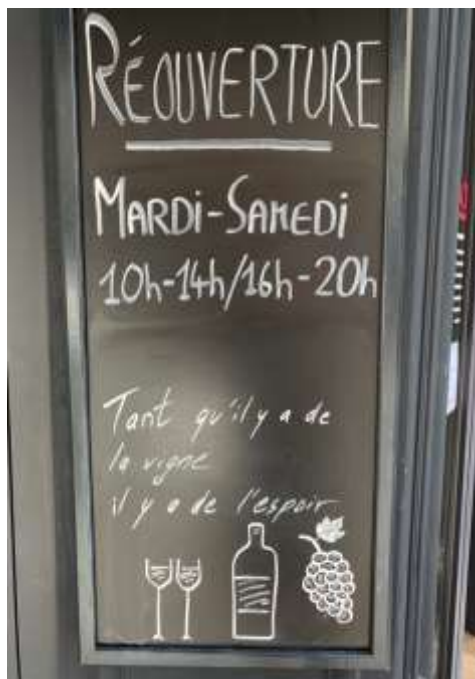 RÉOUVERTURE
MARDi-SAMEDi
10h-14h/16h-20h
Tant qu'il y a de
la vigne
il y a de l'espoir